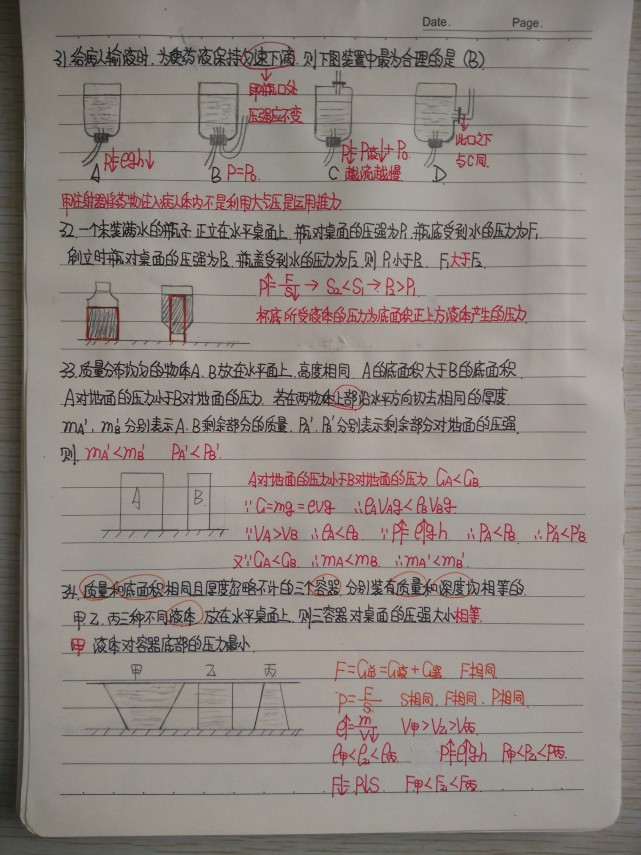 Date.
Page.
31.给病人输液时,为使药液保持匀速下滴,则下图装置中最为合理的是(B)
即瓶口处
压强应不变
此口之下
与C同.
A P↓=ρgh↓
B P=P₀.
C P↓=P液↓+P₀
越流越慢
D
用注射器将药物注入病人体内不是利用大气压是运用推力
32.一个未装满水的瓶子.正立在水平桌面上.瓶对桌面的压强为P₁瓶底受到水的压力为F₁
倒立时瓶对桌面的压强为P₂.瓶盖受到水的压力为F₂.则P₁小于P₂ F₁大于F₂.
P↑=F/S↓→S₂<S₁→P₂>P₁
杯底所受液体的压力为底面积正上方液体产生的压力.
33.质量分布均匀的物体A.B放在水平面上.高度相同.A的底面积大于B的底面积.
A对地面的压力小于B对地面的压力.若在两物体上部沿水平方向切去相同的厚度.
mA'.mB'分别表示A.B剩余部分的质量.PA'.PB'分别表示剩余部分对地面的压强.
则.mA'<mB' PA'<PB'.
A B
A对地面的压力小于B对地面的压力 GA<GB.
∵G=mg=ρvg ∴ρAVAg<ρBVBg.
∵VA>VB ∴ρA<ρB. ∵P↑=ρ↑gh ∴PA<PB. ∴P'A<P'B
又∵GA<GB. ∴mA<mB. ∴mA'<mB'.
34.质量和底面积相同且厚度忽略不计的三个容器.分别装有质量和深度均相等的.
甲.乙.丙三种不同液体.放在水平桌面上.则三容器对桌面的压强大小相等.
甲 液体对容器底部的压力最小.
甲 乙 丙
F=G总=G液+G容 F相同.
P=F/S S相同.F相同.P相同.
ρ↑=m/V↓ V甲>V乙>V丙.
ρ甲<ρ乙<ρ丙 P↑=ρ↑gh P甲<P乙<P丙.
F↓=P↓S. F甲<F乙<F丙.